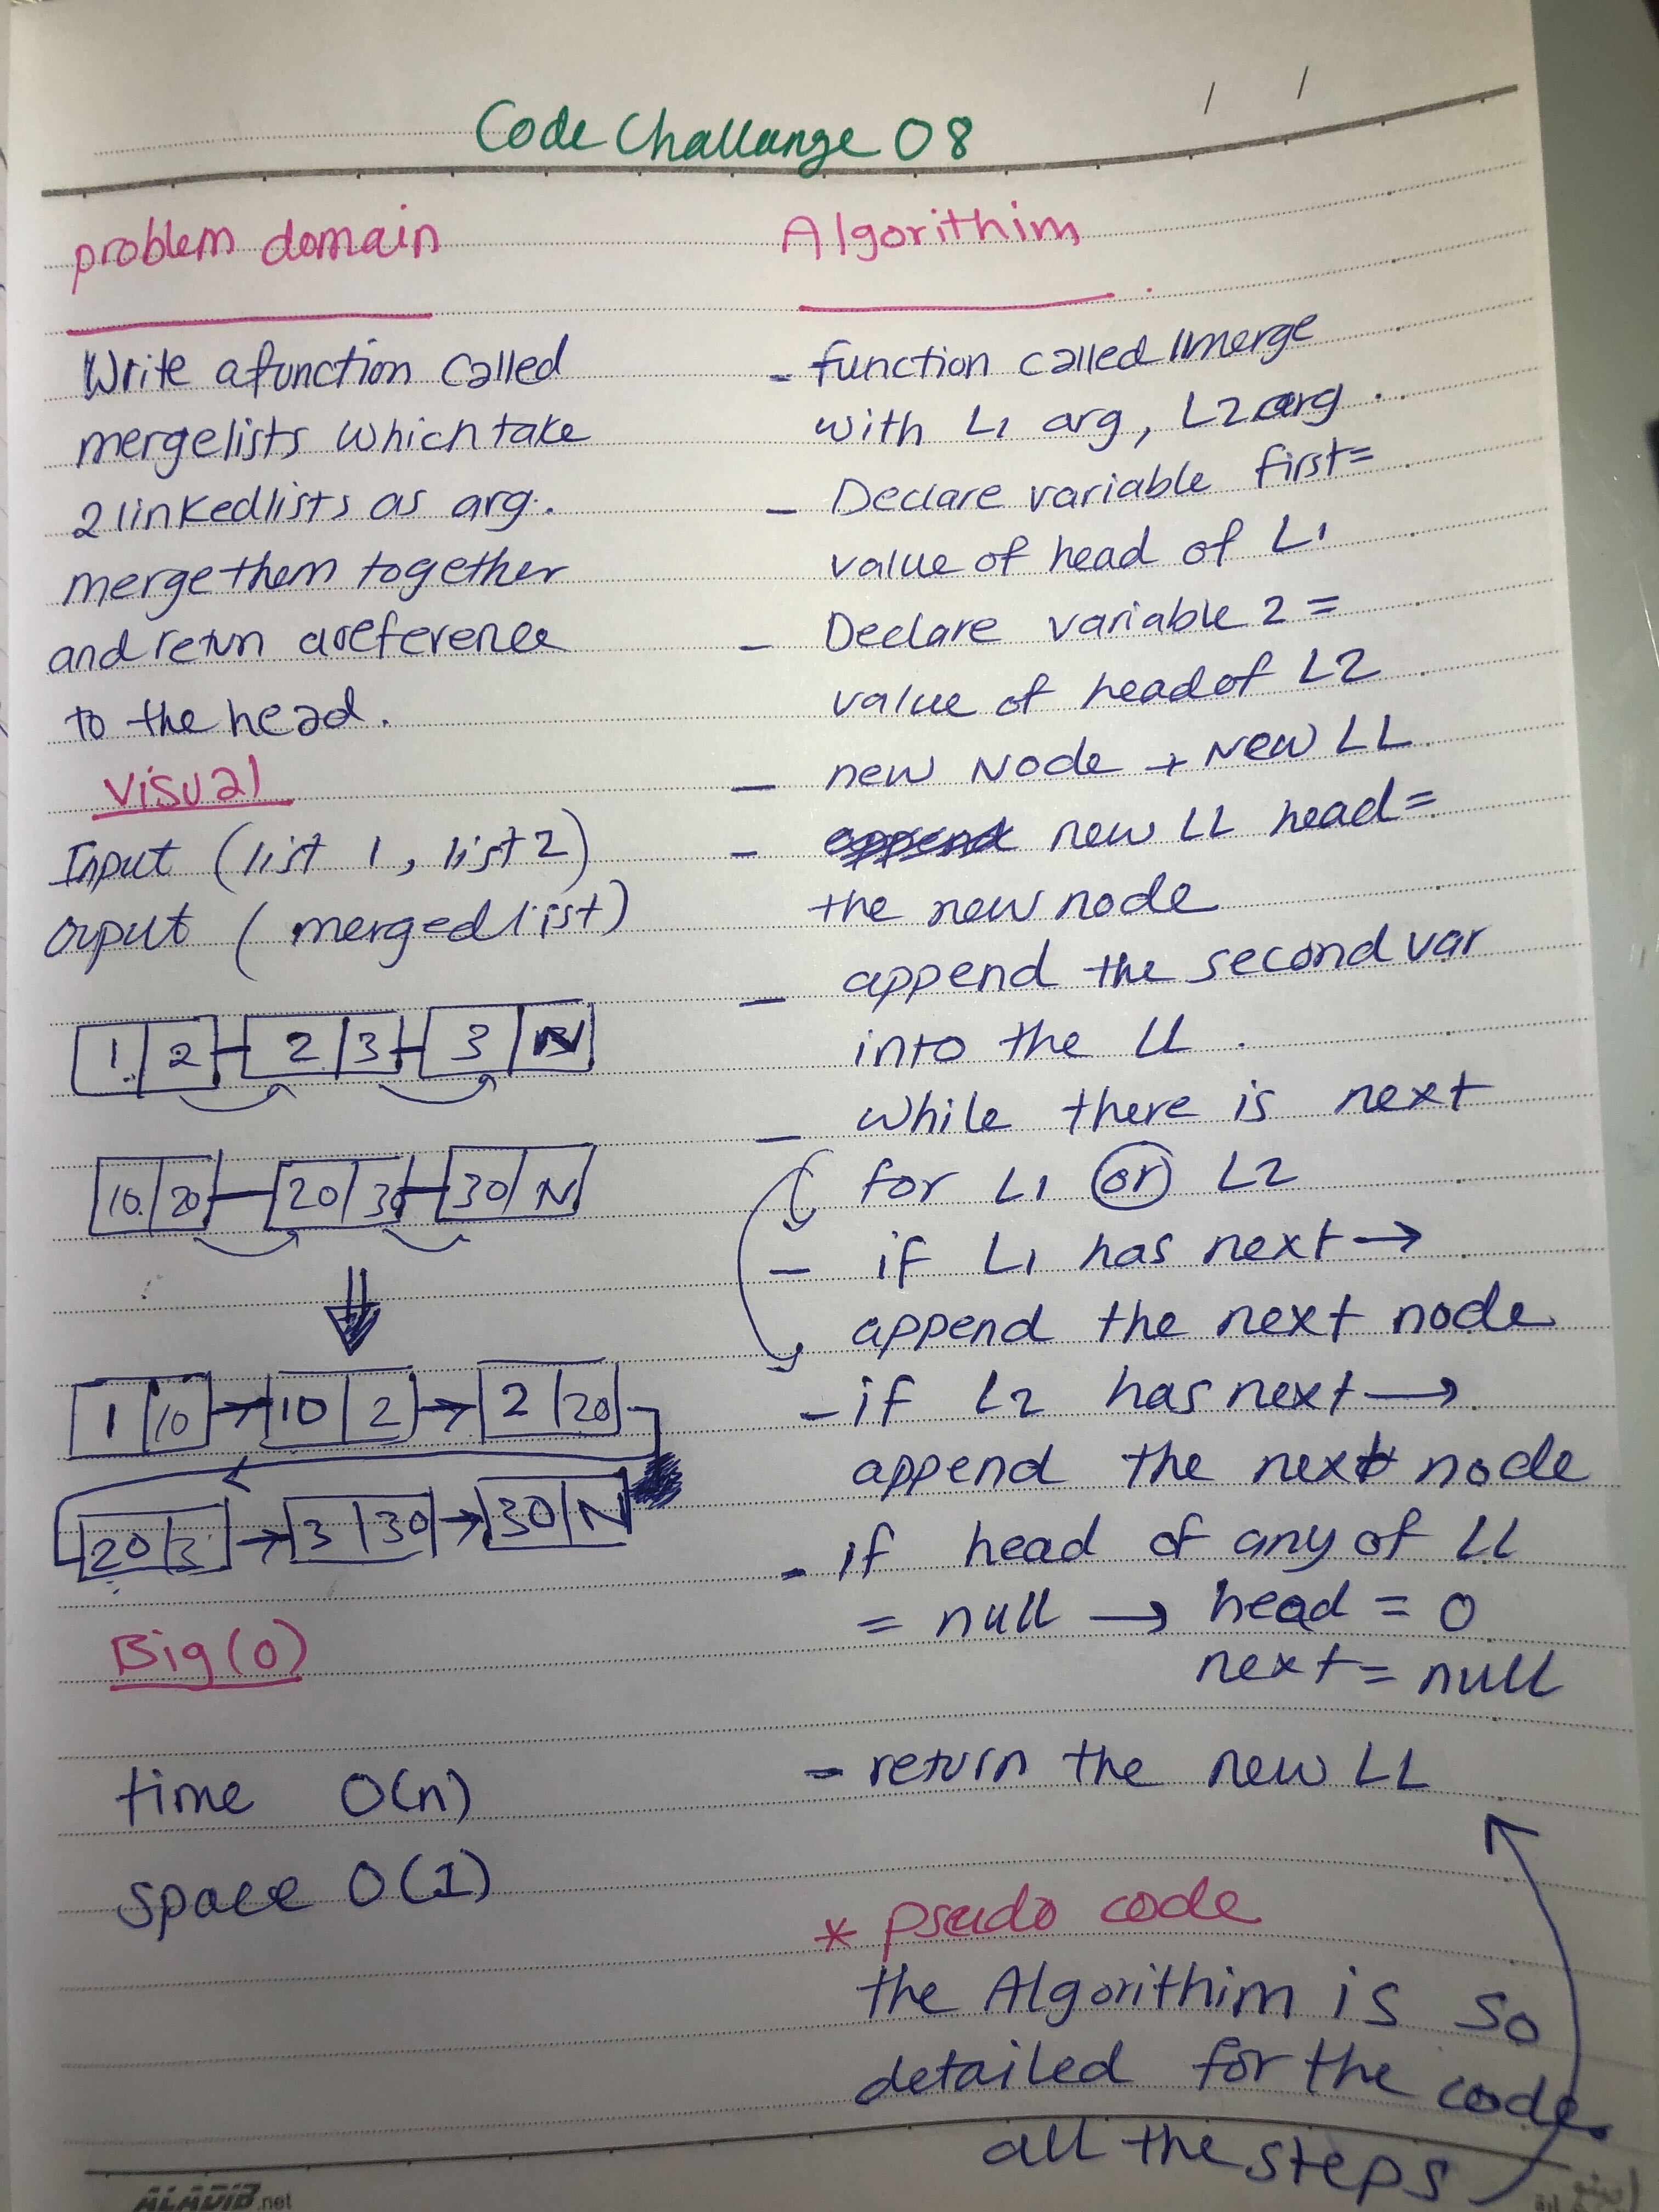 Code Challange 08
problem domain
Write a function called
mergelists which take
2 linkedlists as arg.
merge them together
and retun a reference
to the head.
Visual
Input (list 1, list 2)
Ouput ( merged list)
1 | 2 2 | 3 3 | N
10 | 20 20 | 30 30 | N
1 | 10 10 | 2 2 | 20
20 | 3 3 | 30 30 | N
Big(O)
time O(n)
space O(1)
Algorithim
- function called llmerge
with L1 arg, L2 arg.
- Declare variable first=
value of head of L1
- Declare variable 2 =
value of head of L2
- new Node + New LL
- append new LL head=
the new node
- append the second var
into the LL.
- while there is next
for L1 or L2
- if L1 has next →
append the next node
- if L2 has next →
append the next node
- if head of any of LL
= null → head = 0
next = null
- return the new LL
* Pseudo code
the Algorithim is so
detailed for the code
all the steps
ALADIB.net